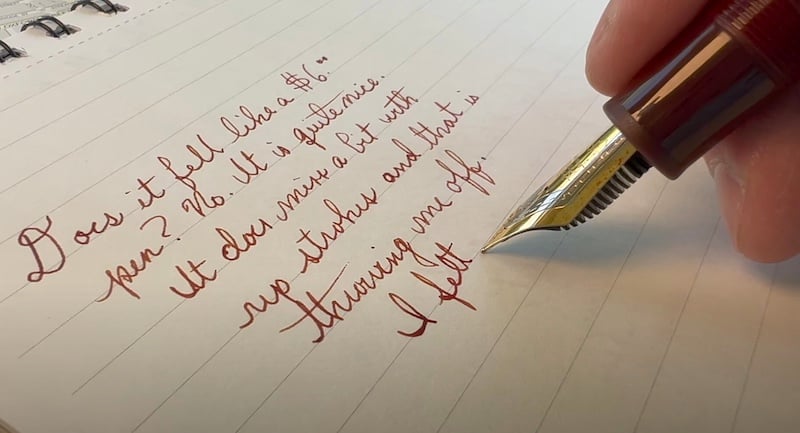 Does it fell like a $6.00
pen? No. It is quite nice.
It does miss a bit with
up strokes and that is
throwing me off.
I felt